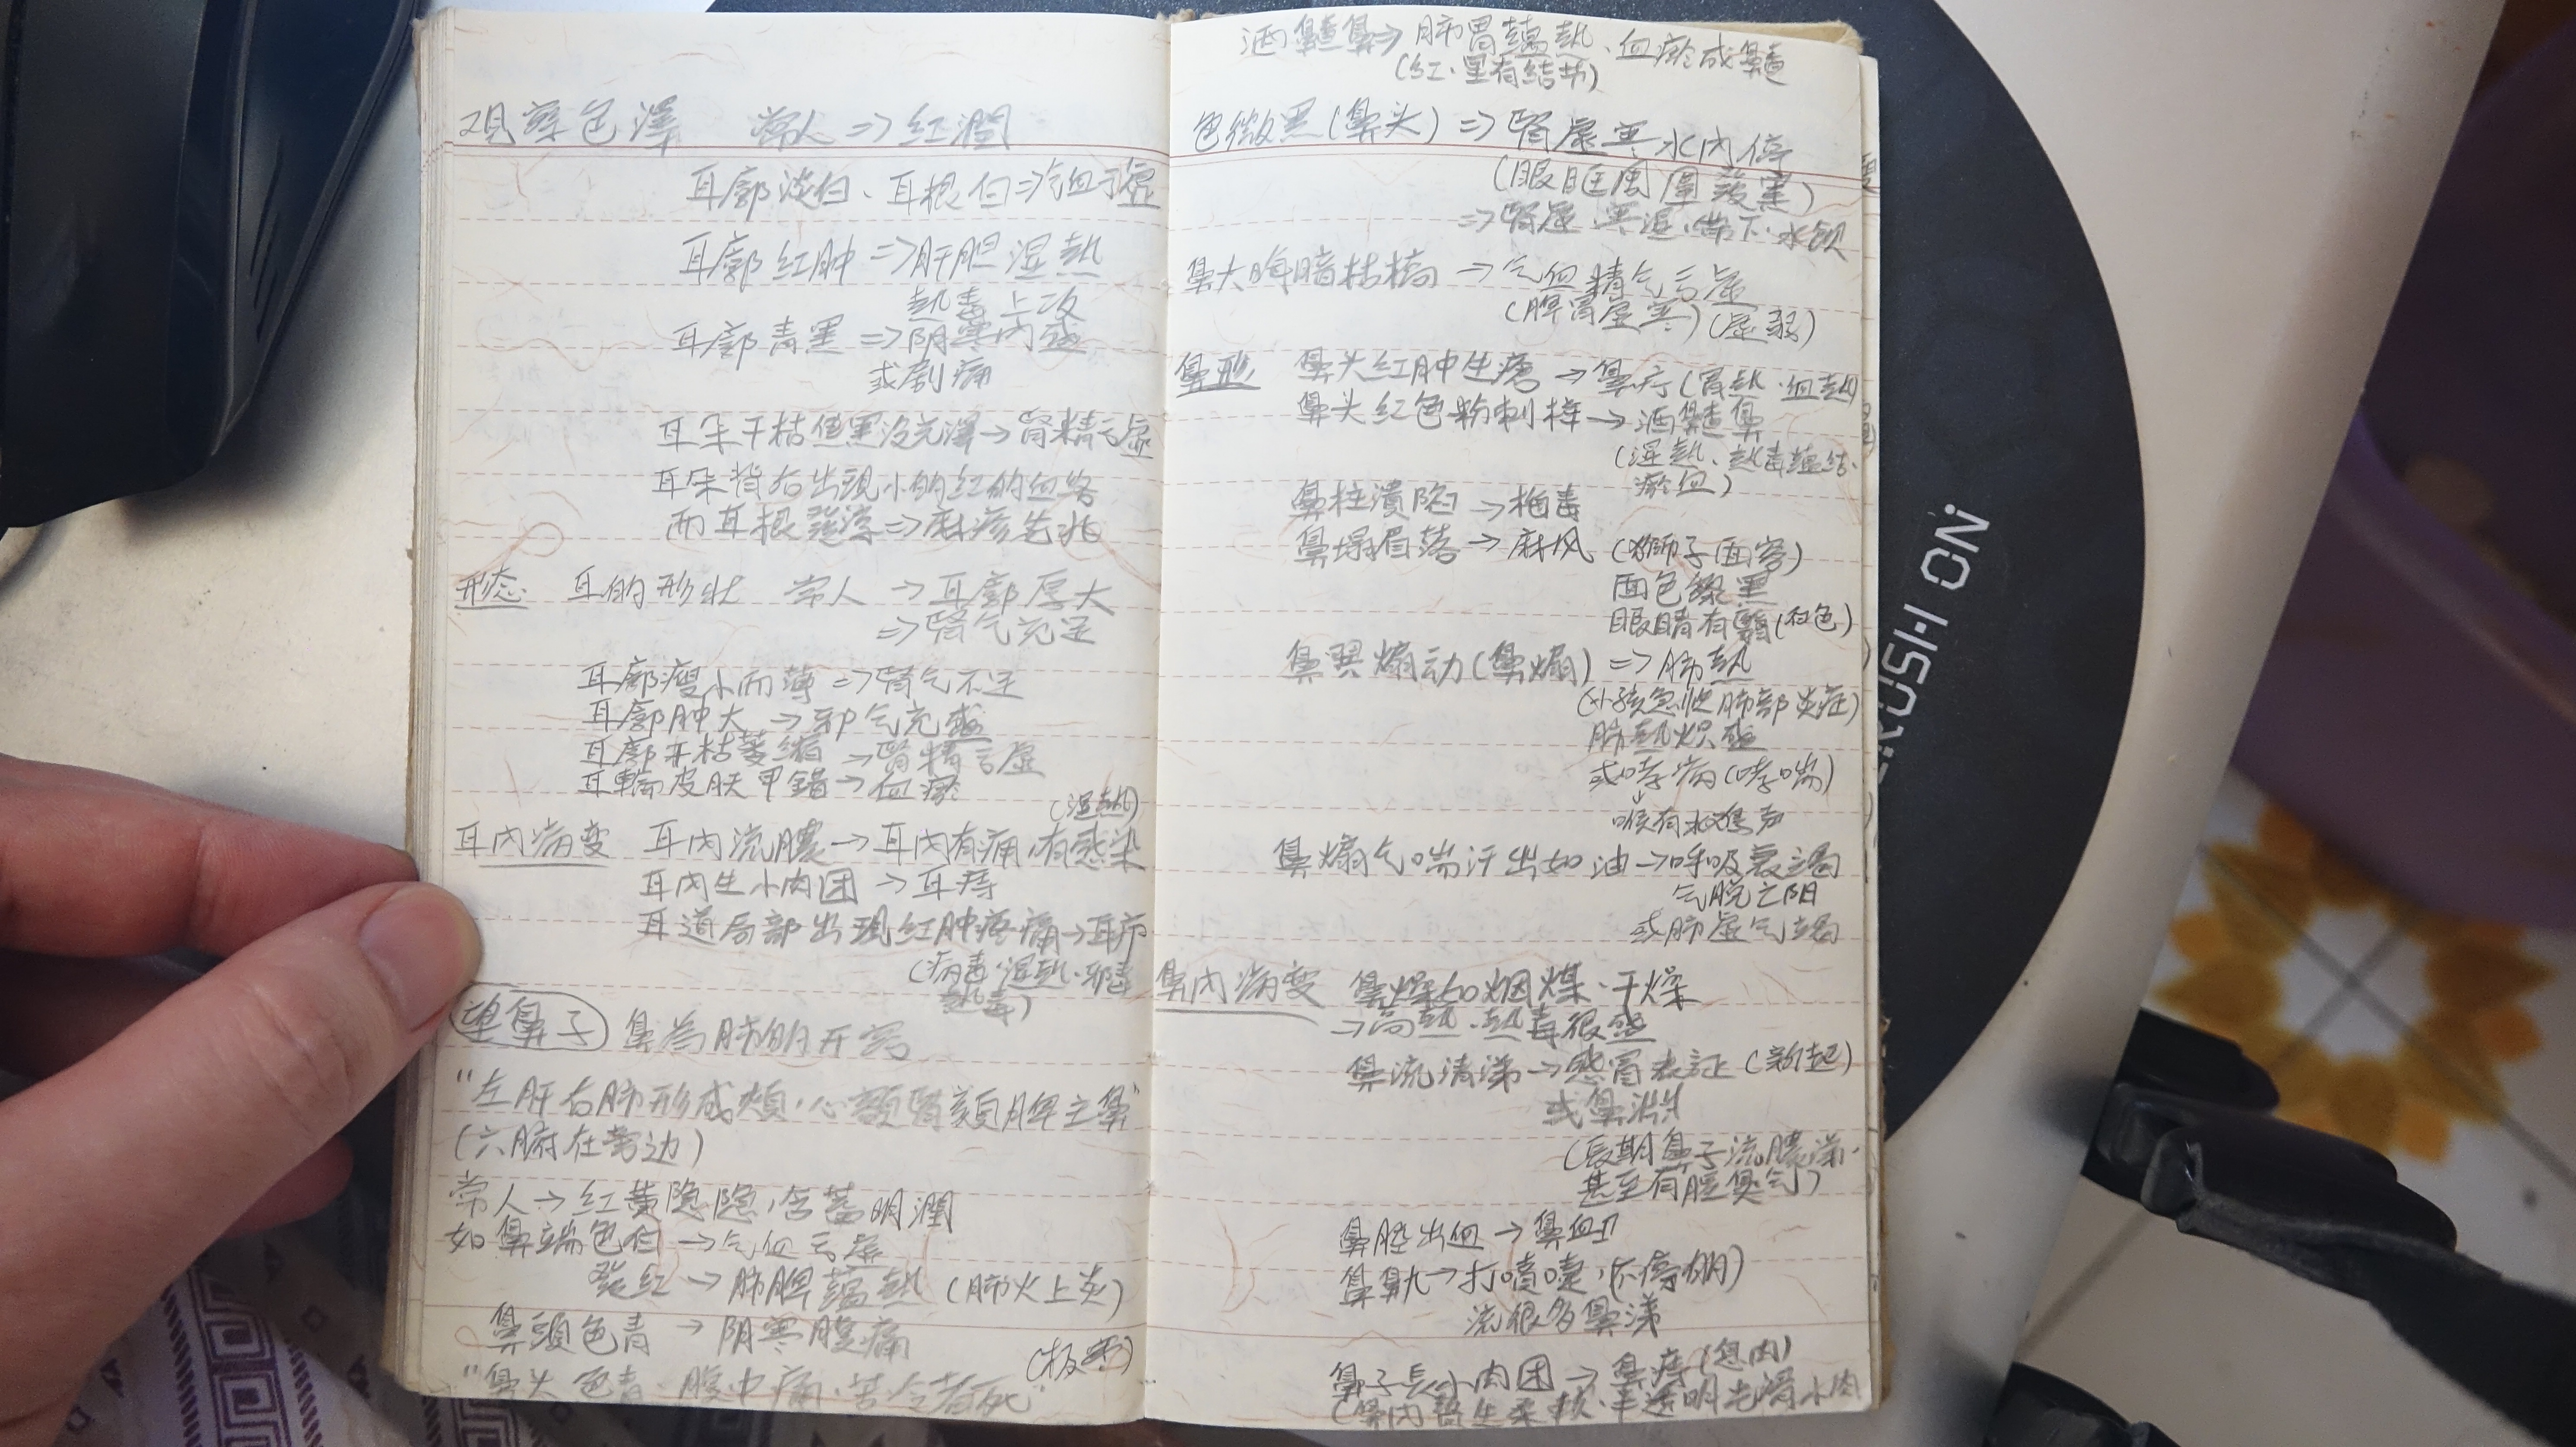 观察色澤 常人 => 红潤
耳廓淡白、耳根白=>气血亏虚
耳廓红肿 => 肝胆湿热
热毒上攻
耳廓青黑 => 阴寒内盛
或剧痛
耳朵干枯色黑没光澤→腎精亏虚
耳朵背后出现小的红的血络
而耳根發凉=>麻疹先兆
形态 耳的形状 常人 → 耳廓厚大
=> 腎气充足
耳廓瘦小而薄 => 腎气不足
耳廓肿大 → 邪气充盛
耳廓干枯萎縮 → 腎精亏虚
耳輪皮肤甲錯→血瘀
(湿热)
耳内病变 耳内流膿→耳内有痛,有感染
耳内生小肉团→耳痔
耳道局部出现红肿疼痛→耳疖
(病毒·湿热·邪毒
热毒)
望鼻子 鼻為肺的开窍
"左肝右肺形成頰,心額腎頦脾主鼻"
(六腑在旁边)
常人→红黄隐隐,含蓄明潤
如鼻端色白→气血亏虚
發红→肺脾蕴热 (肺火上炎)
鼻頭色青 → 阴寒腹痛
"鼻头色青·腹中痛·苦冷者死"
酒齇鼻=>肺胃蕴热、血瘀成齇
(红·里有結节)
色微黑(鼻头) => 腎虚寒水内停
(眼眶周圍發黑)
=>腎虚·寒湿·带下·水饮
鼻头晦暗枯槁 → 气血精气亏虚
(脾胃虚寒)(虚弱)
鼻形 鼻头红肿生瘡→鼻疖(胃热·血热)
鼻头红色粉刺样→酒齇鼻
(湿热、热毒蕴结·
瘀血)
鼻柱潰陷→梅毒
鼻塌眉落→麻风 (獅子面容)
面色黧黑
眼睛有翳(白色)
鼻翼煽动(鼻煽) => 肺热
(小孩急性肺部炎症)
肺热炽盛
或哮病(哮喘)
喉有水鸡声
鼻煽气喘汗出如油→呼吸衰竭
气脱亡阴
或肺虚气竭
鼻内病变 鼻燥如烟煤·干燥
→高热·热毒很盛
鼻流清涕→感冒表证(新起)
或鼻渊
(長期鼻子流膿涕·
甚至有腥臭气)
鼻腔出血→鼻血
鼻鼽→打噴嚏,(不停的)
流很多鼻涕
鼻子長小肉团→鼻痔(息肉)
(鼻内贅生柔軟·半透明光滑小肉
RUSH ON